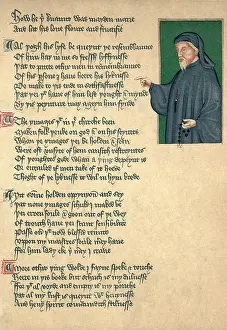 How he þi servaunt was mayden marie
And lat his love floure and fructifie
Al þogh his lyfe be queynt þe resemblaunce
Of him haþ in me so fressh lyflynesse
Þat to putte othir men in remembraunce
Of his persone I have heere his lyknesse
Do make to þis ende in sothfastnesse
Þat þei þat have of him lest þought & mynde
By þis peynture may ageyn him fynde
The ymages þt in þe chirche been
Maken folk þenke on god & on his seyntes
Whan þe ymages þei be holden & seen
Were oft unsyte of hem causith restreyntes
Of þoughtes gode whan a þing depeynt is
Or entailed if men take of it heede
Thoght of þe lyknesse it wil in hym brede
Yit some holden oppynyoun and sey
Þat none ymages schuld I maked be
Þei erren foule & goon out of þe wey
Of trouth have þei scant sensibilitee
Passe over þt now blessid trinite
Upon my maistres soule mercy have
For him lady eke þi mercy I crave
More othir þing wolde I fayne speke & touche
Heere in þis booke but schuch is my dulnesse
For þt al voyde and empty is my pouche
Þat al my lust is queynt wt hevynesse
And hevy spirit comaundith stilnesse